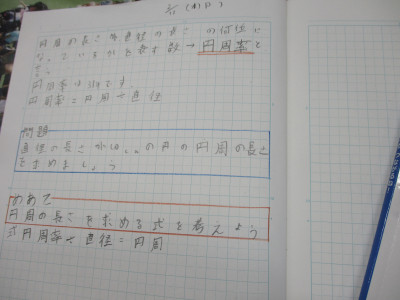 円周の長さが直径の長さの何倍に
なっているかを表す数→円周率と
いう
円周率=円周÷直径
問題
直径の長さが10cmの円の円周の長さ
を求めましょう
めあて
円周の長さを求める式を考えよう
式円周率×直径=円周